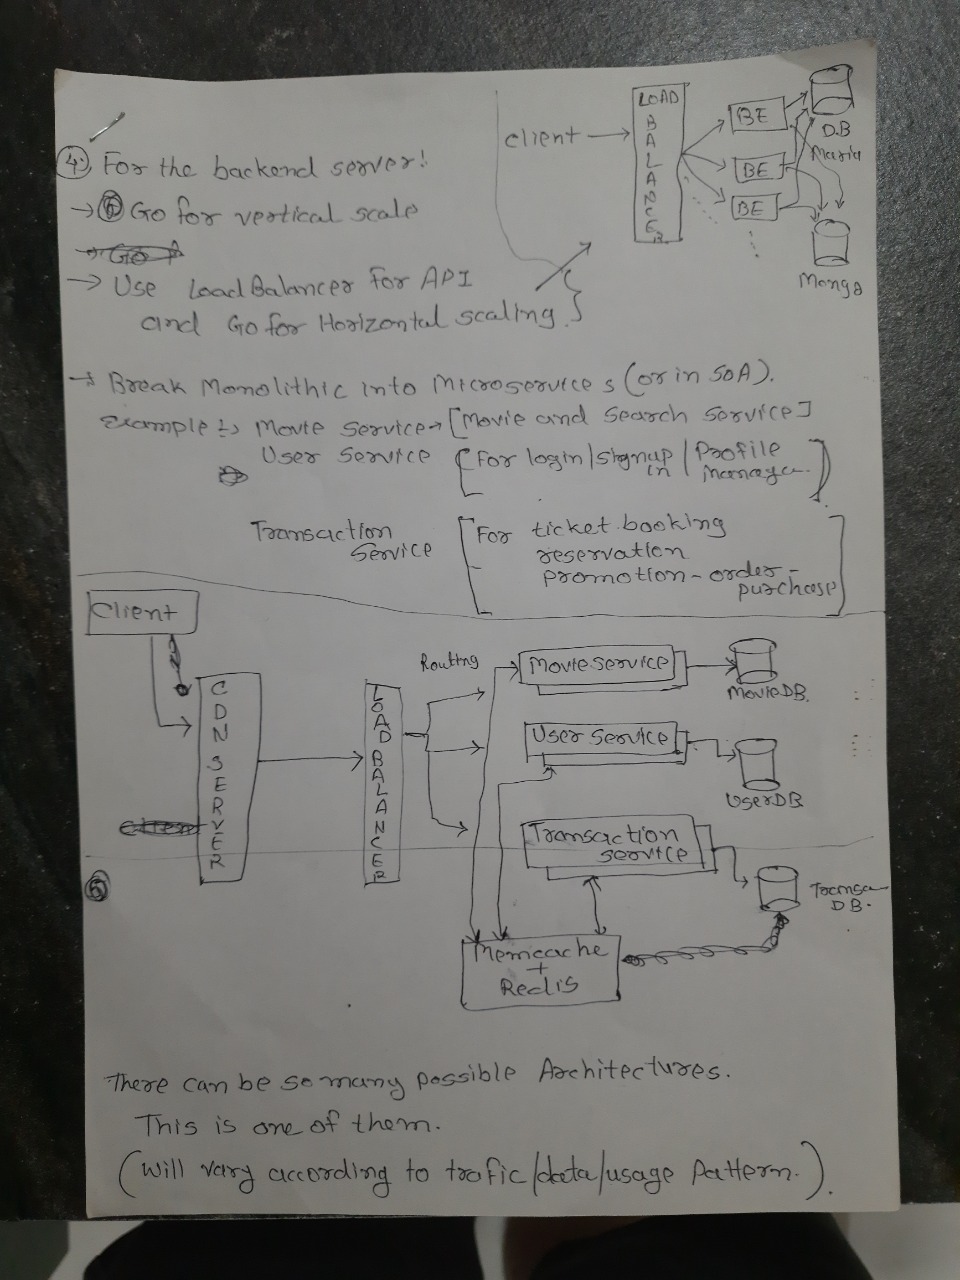 client
LOAD BALANCER
BE
BE
BE
DB
Maria
Mongo
4. For the backend server!
→ Go for vertical scale
→ Use LoadBalancer For API
and Go for Horizontal scaling.
→ Break Monolithic into Microservices (or in SOA).
Example :→ Movie Service → [Movie and Search Service]
User Service [For login/signup/in / Profile
Manage.]
Transaction
Service
[For ticket booking
reservation
promotion - order -
purchase]
Client
CDN SERVER
LOAD BALANCER
Routing
Movie Service
MovieDB.
User Service
UserDB
Transaction
service
Transa
DB.
5
Memcache
+
Redis
There can be so many possible Architectures.
This is one of them.
(Will vary according to trafic/data/usage Pattern.).